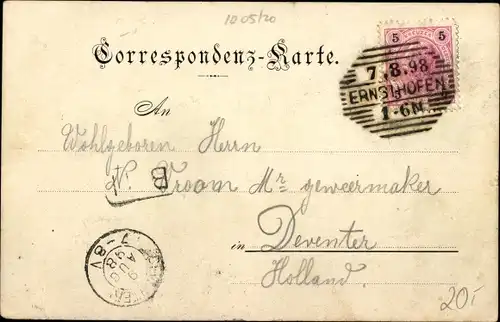 10 05/20
Correspondenz-Karte.
5 5
7.8.98
ERNSTHOFEN
1-6N.
An
Wohlgeboren Herrn
Vroom Mr geweermaker
B
in Deventer
Holland.
7-8V
9 AUG 98
20.-